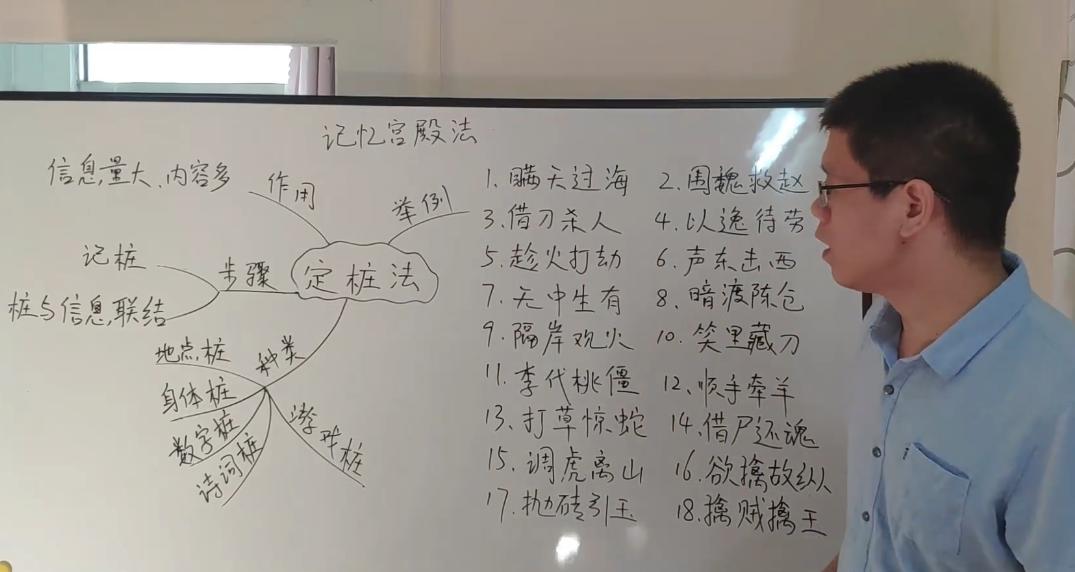 记忆宫殿法
信息量大、内容多
作用
举例
记桩
步骤
定桩法
桩与信息联结
种类
地点桩
身体桩
数字桩
诗词桩
字桩
1.瞒天过海 2.围魏救赵
3.借刀杀人 4.以逸待劳
5.趁火打劫 6.声东击西
7.无中生有 8.暗渡陈仓
9.隔岸观火 10.笑里藏刀
11.李代桃僵 12.顺手牵羊
13.打草惊蛇 14.借尸还魂
15.调虎离山 16.欲擒故纵
17.抛砖引玉 18.擒贼擒王